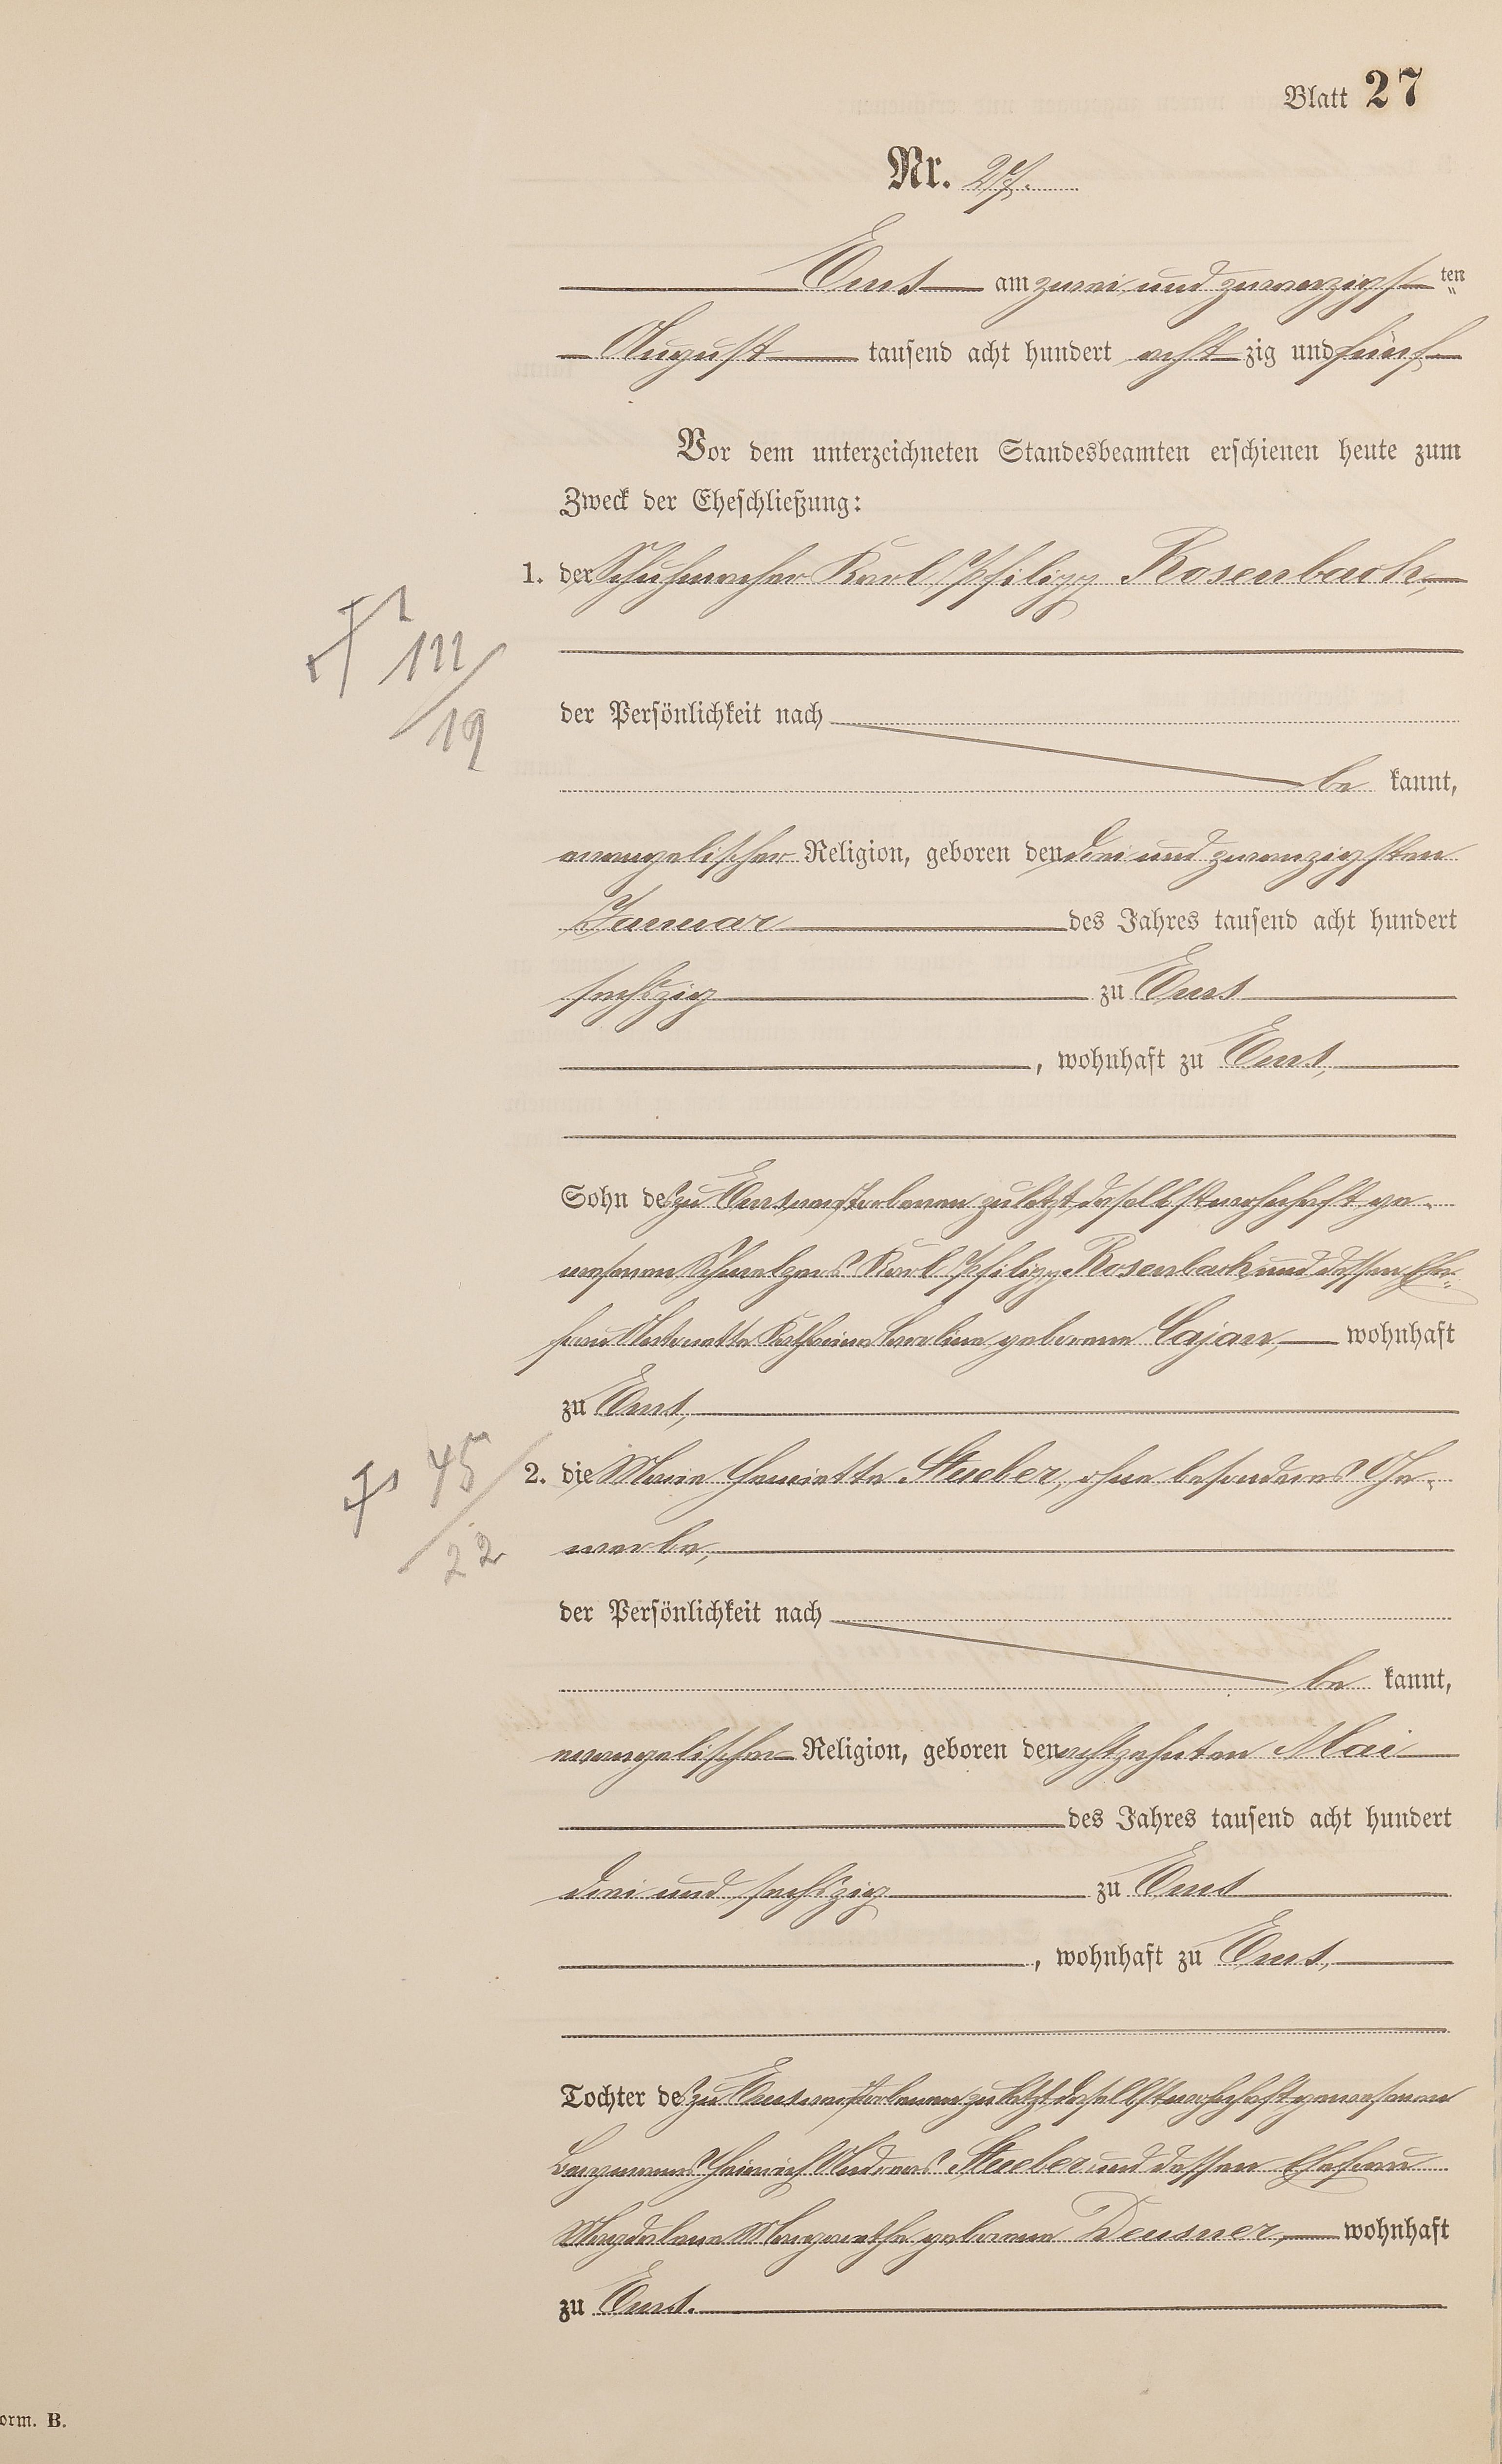 Blatt 27
Nr. 27.
Ems am zwei und zwanzigsten
August tausend acht hundert acht zig und fünf
Vor dem unterzeichneten Standesbeamten erschienen heute zum
Zweck der Eheschließung:
1. der Schuhmacher Karl Philipp Rosenbach,
111/19
der Persönlichkeit nach
be kannt,
evangelischer Religion, geboren den drei und zwanzigsten
Januar des Jahres tausend acht hundert
sechszig zu Ems
, wohnhaft zu Ems,
Sohn des zu Ems verstorbenen zuletzt daselbst wohnhaft ge-
wesenen Schmelzers Karl Philipp Rosenbach und dessen Ehe-
frau Katharine Caroline geborene Cajan, wohnhaft
zu Ems,
45/22
2. die Marie Henriette Stueber, ohne besonderes Ge-
werbe,
der Persönlichkeit nach
be kannt,
evangelischer Religion, geboren den achtzehnten Mai
des Jahres tausend acht hundert
drei und sechszig zu Ems
, wohnhaft zu Ems,
Tochter des zu Ems verstorbenen zuletzt daselbst wohnhaft gewesenen
Bergmanns Heinrich Andreas Stueber und dessen Ehefrau
Magdalene Margarethe geborene Deusner, wohnhaft
zu Ems.
orm. B.